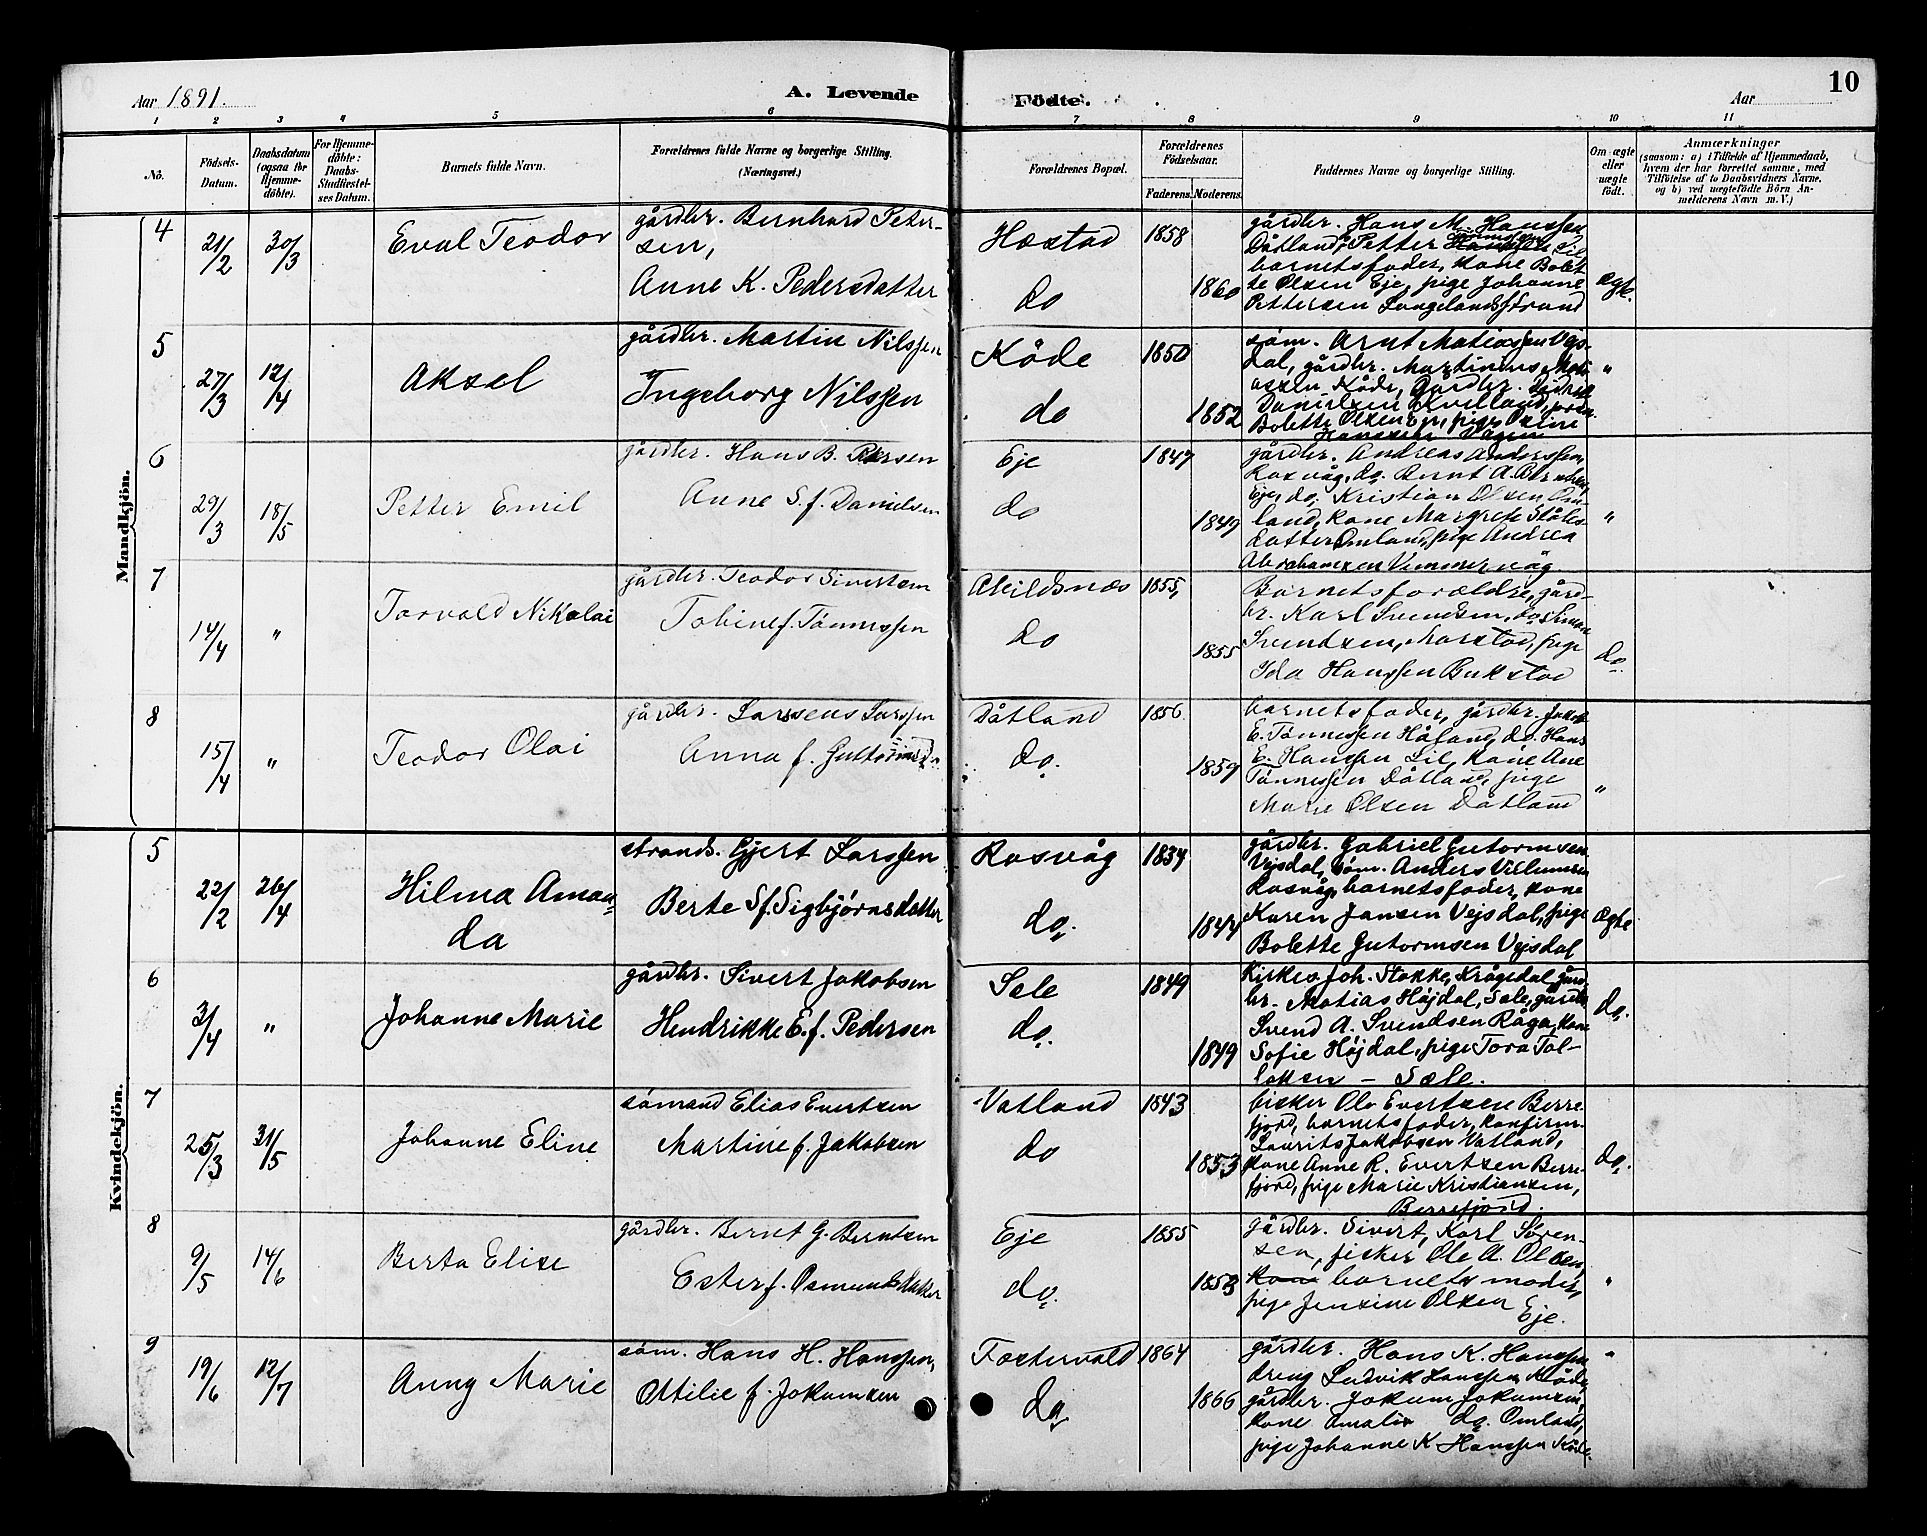 Aar 1891.
A. Levende
Födte.
Aar
10
1
2
3
4
5
6
7
8
9
10
11
No.
Födsels-
Datum.
Daabsdatum
(ogsaa for
Hjemme-
döbte).
For Hjemme-
döbte:
Daabs-
Stadfæstel-
ses Datum.
Barnets fulde Navn.
Forældrenes fulde Navne og borgerlige Stilling.
(Næringsvei.)
Forældrenes Bopæl.
Forældrenes
Födselsaar.
Faderens.
Moderens.
Faddernes Navne og borgerlige Stilling.
Om ægte
eller
uægte
födt.
Anmærkninger
(saasom: a) i Tilfælde af Hjemmedaab,
hvem der har forrettet samme, med
Tilföielse af to Daabsvidners Navne,
og b) ved uægtefödte Börn An-
melderens Navn m. V.)
Mandkjön.
4
21/2
30/3
Eval Teodor
gårdbr. Bernhard Peter-
sen,
Anne K. Pedersdatter
Hæstad
do
1858
1860
gårdbr. Hans M. Hanssen
Dåtland, Petter
barnetsfader, kone Bolet-
te Olsen Eje, pige Johanne
Pettersen Langelandsstrand
Ægte.
5
27/3
12/4
Aksel
gårdbr. Martin Nilssen
Ingeborg Nilssen
Kåde
do
1850
1852
söm. Arnt Matiassen Vejs-
dal, gårdbr. Martinius Mati-
assen Kåde, Gårdbr.
Danielsen Kvelland,
Bolette Olsen Eje, pige Oxline
Hanssen Vågen
"
6
29/3
18/5
Petter Emil
gårdbr. Hans B.
Anne S. f. Danielsen
Eje
do
1847
1849
gårdbr. Andreas Anderssen,
Rosvåg, do. Bernt A. Berntsen,
Eje, do. Kristian Olsen Om-
land, kone Margrete Ståls-
datter Omland, pige Andrea
Abrahamsen Vemmervåg
"
7
14/4
"
Torvald Nikolai
gårdbr. Teodor Sivertsen
Tobine f. Tönnessen
Abildsnæs
do
1855,
1855
Barnetsforældre, gård-
br. Karl Svendsen, do. Simon
Svendsen, pige
Ida Hanssen Bukstad
do.
8
15/4
"
Teodor Olai
gårdbr. Larsens Larssen
Anna f.
Dåtland
do.
1856
1859
barnetsfader, gårdbr. Jakob
E. Tönnessen Håland, do. Hans
E. Hanssen Lil, kone Ane
Tönnessen Dåtland, pige
Marie Olsen Dåtland
"
Kvindekjön.
5
22/2
26/4
Hilma Aman-
da
strands. Gjert Larssen
Berte S f. Sigbjörnsdatter
Rosvåg
do.
1834
1844
gårdbr. Gabriel Gutormsen
Vejsdal, söm. Anders Villumsen
Rosvåg, barnetsfader, kone
Karen Jansen Vejsdal, pige
Bolette Gutormsen Vejsdal
Ægte
6
3/4
"
Johanne Marie
gårdbr. Sivert Jakobsen
Hendrikke E. f. Pedersen
Sæle
do.
1849
1849
Kirkes. Joh. Stokke, Krågedal, gård-
br. Matias Höjdal, Sæle, gårdbr.
Svend A. Svendsen Råga, kone
Sofie Höjdal, pige Tora Tol-
laksen — Sæle.
do.
7
25/3
31/5
Johanne Eline
sömand Elias Evertsen
Martine f. Jakobsen
Vatland
do
1843
1853
fisker Ole Evertsen Berre-
fjord, barnetsfader, konfirm.
Laurits Jakobsen Vatland,
kone Anne R. Evertsen Berre-
fjord, pige Marie Kristiansen,
Berrefjord.
do.
8
9/5
14/6
Berta Elise
gårdbr. Bernt G. Berntsen
Ester f. Osmundsdatter
Eje
do.
1855
1853
gårdbr. Sivert, Karl Sören-
sen, fisker Ole A. Olsen,
kone barnets moder,
pige Jensine Olsen
Eje.
"
9
19/6
12/7
Anny Marie
söm. Hans H. Hanssen,
Ottilie f. Jokumsen
Fostervold
do.
1864
1866
gårdbr. Hans K. Hanssen
dreng Ludvik Hanssen Kåde,
gårdbr. Jokum Jokumsen,
kone Amalie do. Omland,
pige Johanne K Hanssen Kåde.
"